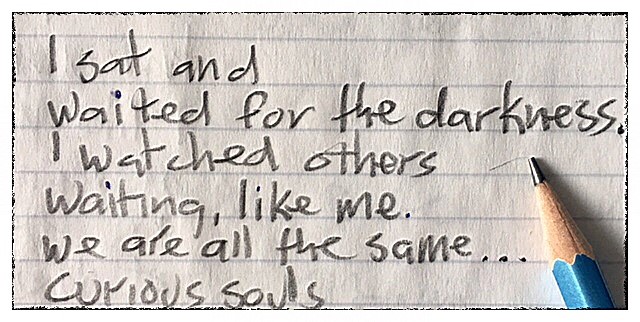 I sat and
waited for the darkness.
I watched others
Waiting, like me.
we are all the same...
Curious souls